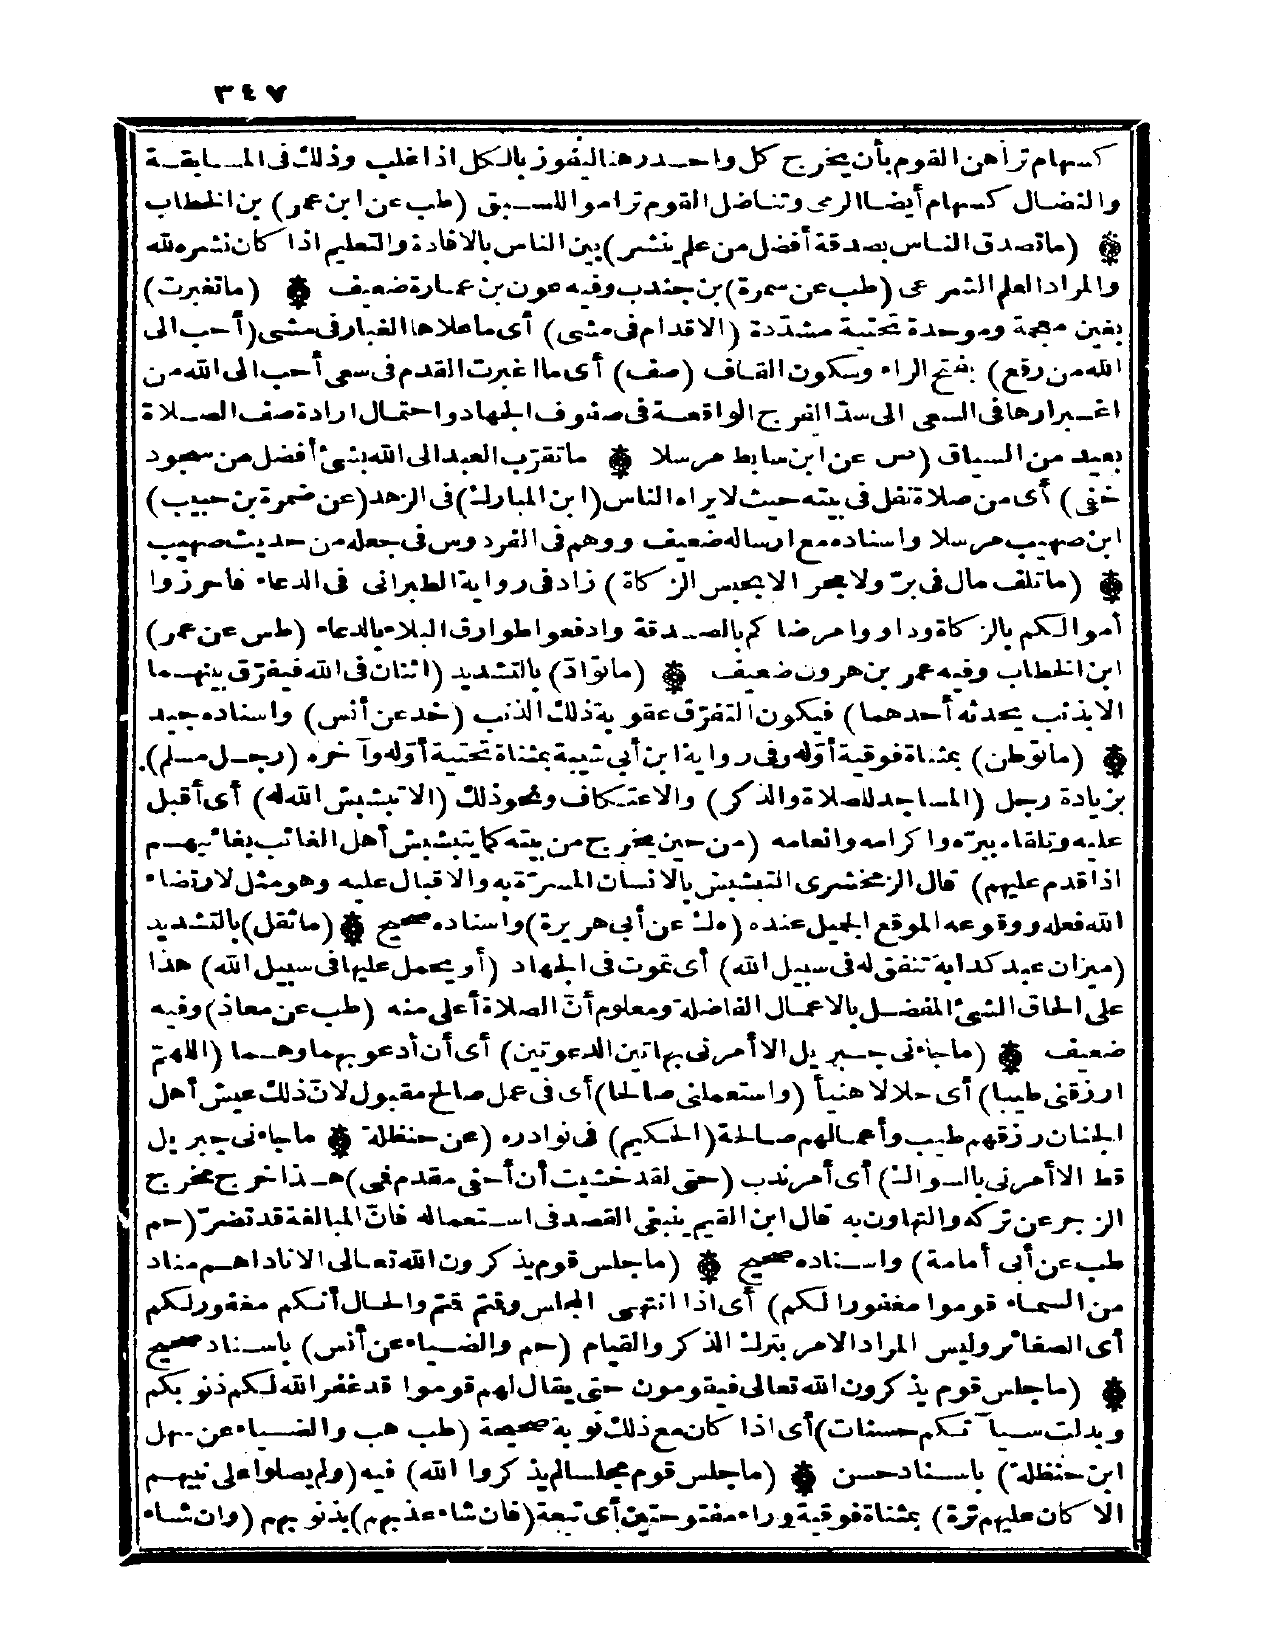 ٣٤٧
كسهام تراهن القوم بأن يخرج كل واحد رهنا ليفوز بالكل اذا غلب وذلك فى المسابقة
والنضال كسهام أيضا الرمى وتناضل القوم تراموا للسبق (طب عن ابن عمر) بن الخطاب
(ما تصدق الناس بصدقة أفضل من علم ينشر) بين الناس بالافادة والتعليم اذا كان نشره لله
والمراد العلم الشرعى (طب عن سمرة) بن جندب وفيه عون بن عمارة ضعيف (ما تغبرت)
بغين معجمة وموحدة تحتية مشددة (الاقدام فى مشى) أى ما علاها الغبار فى مشى (أحب الى
الله من رقع) بفتح الراء وسكون القاف (صف) أى ما اغبرت القدم فى سعى أحب الى الله من
اغبرارها فى السعى الى سد الفرج الواقعة فى صفوف الجهاد واحتمال ارادة صف الصلاة
بعيد من السياق (ص عن ابن سابط مرسلا ما تقرب العبد الى الله بشئ أفضل من سجود
خفى) أى من صلاة نفل فى بيته حيث لا يراه الناس (ابن المبارك) فى الزهد (عن ضمرة بن حبيب)
ابن صهيب مرسلا واسناده مع ارساله ضعيف ووهم فى الفردوس فى جعله من حديث صهيب
(ما تلف مال فى بر ولا بحر الا بحبس الزكاة) زاد فى رواية الطبرانى فى الدعاء فاحرزوا
أموالكم بالزكاة وداووا مرضاكم بالصدقة وادفعوا طوارق البلاء بالدعاء (طس عن عمر)
ابن الخطاب وفيه عمر بن هرون ضعيف (ما تواد) بالتشديد (اثنان فى الله فيفرق بينهما
الا بذنب يحدثه أحدهما) فيكون التفرق عقوبة ذلك الذنب (خد عن أنس) واسناده جيد
(ما توطن) بمثناة فوقية أوله وفى رواية ابن أبى شيبة بمثناة تحتية أوله وآخره (رجل مسلم)
بزيادة رجل (المساجد للصلاة والذكر) والاعتكاف ونحو ذلك (الا تبشبش الله له) أى أقبل
عليه وتلقاه ببره واكرامه وانعامه (من حين يخرج من بيته كما يتبشبش أهل الغائب بغائبهم
اذا قدم عليهم) قال الزمخشرى التبشبش بالانسان المسرة به والاقبال عليه وهو مثل لارتضاء
الله فعله ووقوعه الموقع الجميل عنده (ه ك عن أبى هريرة) واسناده صحيح (ما ثقل) بالتشديد
(ميزان عبد كدابة تنفق له فى سبيل الله) أى تموت فى الجهاد (أو يحمل عليها فى سبيل الله) هذا
على الحاق الشئ المفضل بالاعمال الفاضلة ومعلوم أن الصلاة أعلى منه (طب عن معاذ) وفيه
ضعيف (ما جاءنى جبريل الا أمرنى بهاتين الدعوتين) أى أن أدعو بهما وهما (اللهم
ارزقنى طيبا) أى حلالا هنيأ (واستعملنى صالحا) أى فى عمل صالح مقبول لان ذلك عيش أهل
الجنان رزقهم طيب وأعمالهم صالحة (الحكيم) فى نوادره (عن حنظلة ما جاءنى جبريل
قط الا أمرنى بالسواك) أى أمر ندب (حتى لقد خشيت أن أحفى مقدم فمى) هذا خرج مخرج
الزجر عن تركه والتهاون به قال ابن القيم ينبغى القصد فى استعماله فان المبالغة قد تضر (حم
طب عن أبى أمامة) واسناده صحيح (ما جلس قوم يذكرون الله تعالى الا ناداهم مناد
من السماء قوموا مغفورا لكم) أى اذا انتهى المجلس وقتم قتم والحال أنكم مغفور لكم
أى الصغائر وليس المراد الامر بترك الذكر والقيام (حم والضياء عن أنس) باسناد صحيح
(ما جلس قوم يذكرون الله تعالى فيقومون حتى يقال لهم قوموا قد غفر الله لكم ذنوبكم
وبدلت سيآتكم حسنات) أى اذا كان مع ذلك توبة صحيحة (طب هب والضياء عن سهل
ابن حنظلة) باسناد حسن (ما جلس قوم مجلسا لم يذكروا الله) فيه (ولم يصلوا على نبيهم
الا كان عليهم ترة) بمثناة فوقية وراء مفتوحتين أى تبعة (فان شاء عذبهم) بذنوبهم (وان شاء